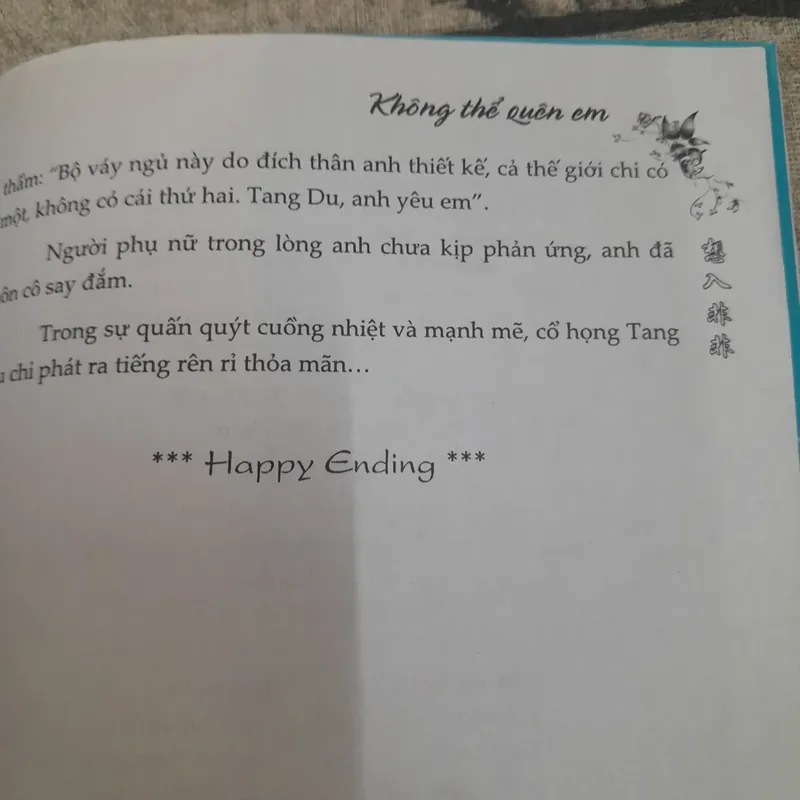 Không thể quên em
thầm: "Bộ váy ngủ này do đích thân anh thiết kế, cả thế giới chỉ có
một, không có cái thứ hai. Tang Du, anh yêu em".
Người phụ nữ trong lòng anh chưa kịp phản ứng, anh đã
ôn cô say đắm.
Trong sự quấn quýt cuồng nhiệt và mạnh mẽ, cổ họng Tang
u chỉ phát ra tiếng rên rỉ thỏa mãn...
*** Happy Ending ***
想
入
非
非